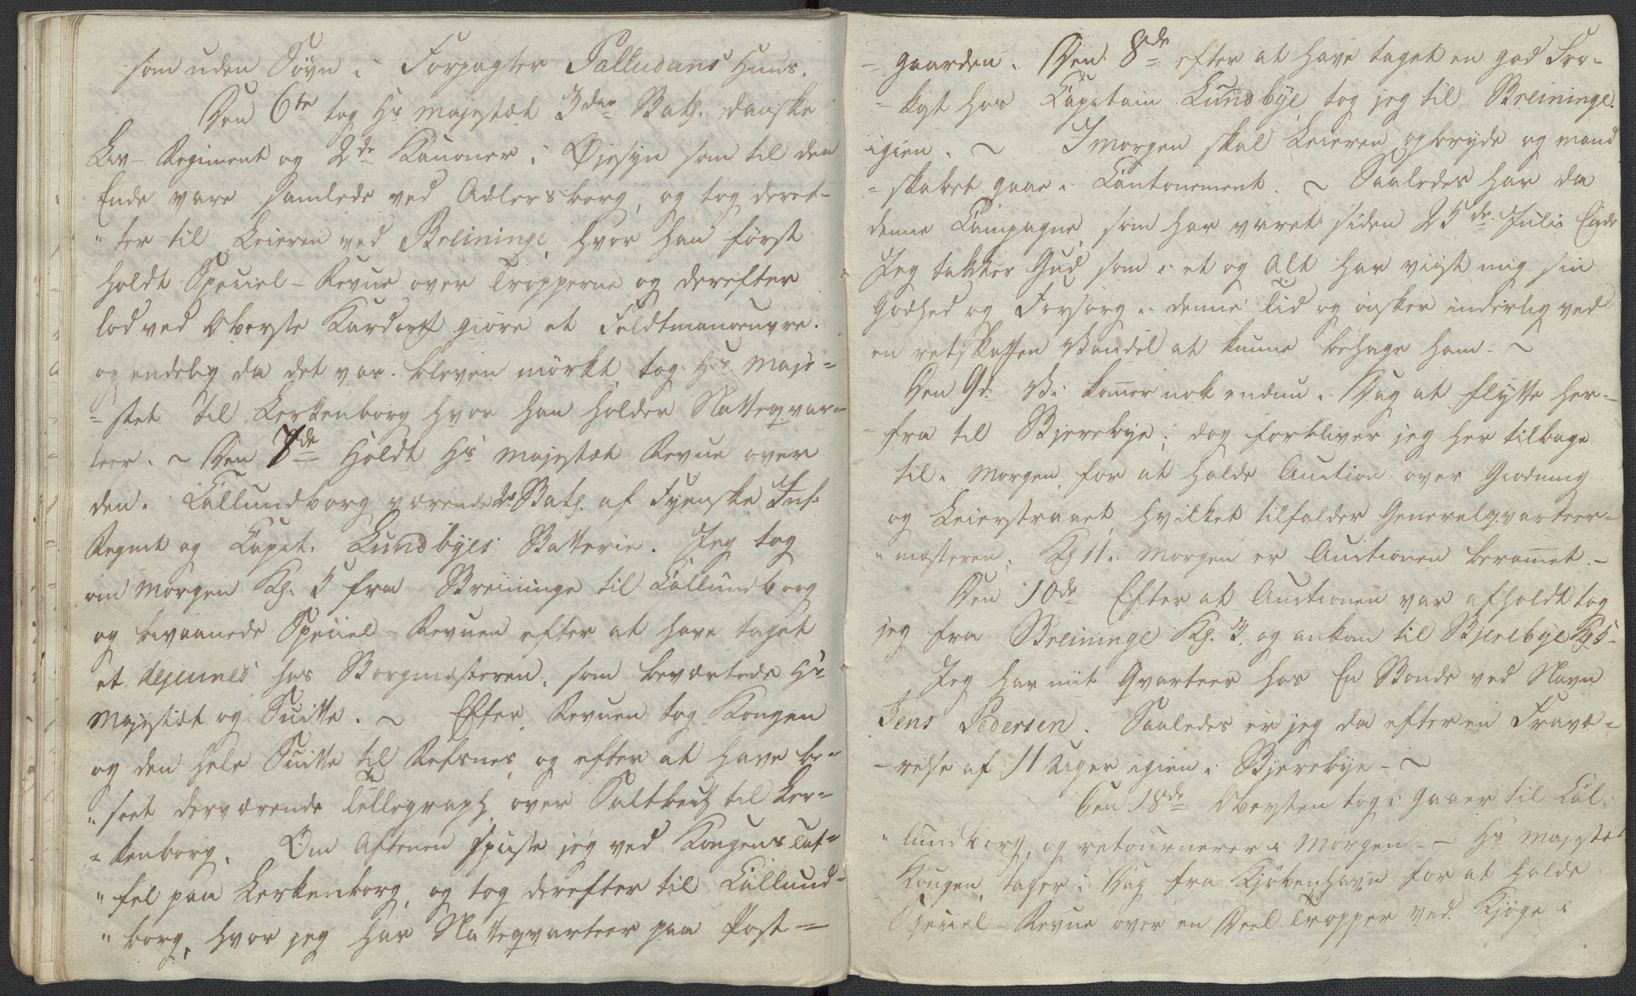 som uden Søvn i Forpagter Palludans Huus.
Den 6te tog Hs Majestæt 3die Bats. danske
Liv-Regiment og 2de Kanoner i Øjesyn som til den
Ende vare samlede ved Adlersborg, og tog deref-
"ter til Leiren ved Breininge, hvor han først
holdt Speciel-Revue over Tropperne og derefter
lod ved Oberste Kardorff giöre et Feldtmanoeuvre.
og endelig da det var bleven mörkt tog Hs. Maje=
=stet til Lerkenborg hvor han holder Natteqvar=
teer. ~ Den 7de Holdt Hs Majestæt Revue over
den i Callundborg værende 2de Bats. af Fyenske Inf:
Regmt og Capt. Lundbyes Batterie. Jeg tog
om Morgen Kl. 5 fra Breininge til Callundborg
og bivaanede Speciel-Revuen efter at have taget
et dejeunes hos Borgmesteren, som beværtede Hs
Majestæt og Suitte. ~ Efter Revuen tog Kongen
og den hele Suitte til Refsnes, og efter at have be=
"seet derværende Tellegraph, over Saltbech til Ler=
=kenborg. Om Aftenen spiiste jeg ved Kongens Taf=
"fel paa Lerkenborg, og tog derefter til Callund=
"borg, hvor jeg har Natteqvarteer paa Post=
=gaarden. Den 8de efter at have taget en god Fro-
=kost hos Capitain Lundbye tog jeg til Breininge
igien. ~ I morgen skal Leieren opbryde og mand
=skabet gaae i Cantonement. ~ Saaledes har da
denne Campagne som har varet siden 25de Julii Ende
Jeg takker Gud, som i et og Alt har viist mig sin
Godhed og Forsorg i denne Tid og ønsker inderlig ved
en retskaffen Vandel at kunne behage ham. ~
Den 9d. Vi komer nok endnu i Dag at flytte her-
=fra til Bjerebye; dog forbliver jeg her tilbage
til i Morgen, for at holde Auction over Giødning
og Leierstraaet, hvilket tilfalder Generalqvarteer-
"mesteren; Kl 11 i Morgen er Auctionen beramet. -
Den 10de Efter at Auctionen var afholdt tog
jeg fra Breininge Kl. 3. og ankom til Bjerebye Kl 5-
Jeg har mit Qvarteer hos En Bonde ved Navn
Jens Pedersen. Saaledes er jeg da efter en Fravæ=
=relse af 11 Uger igien i Bjerebye - ~
Den 18de Obersten tog i Gaaer til Cal:
"lundborg, og retournerer i Morgen. - Hs Majestæt
Kongen tager i Dag fra Kjøbenhavn for at holde
Speciel-Revue over en Deel Tropper ved Kjöge i